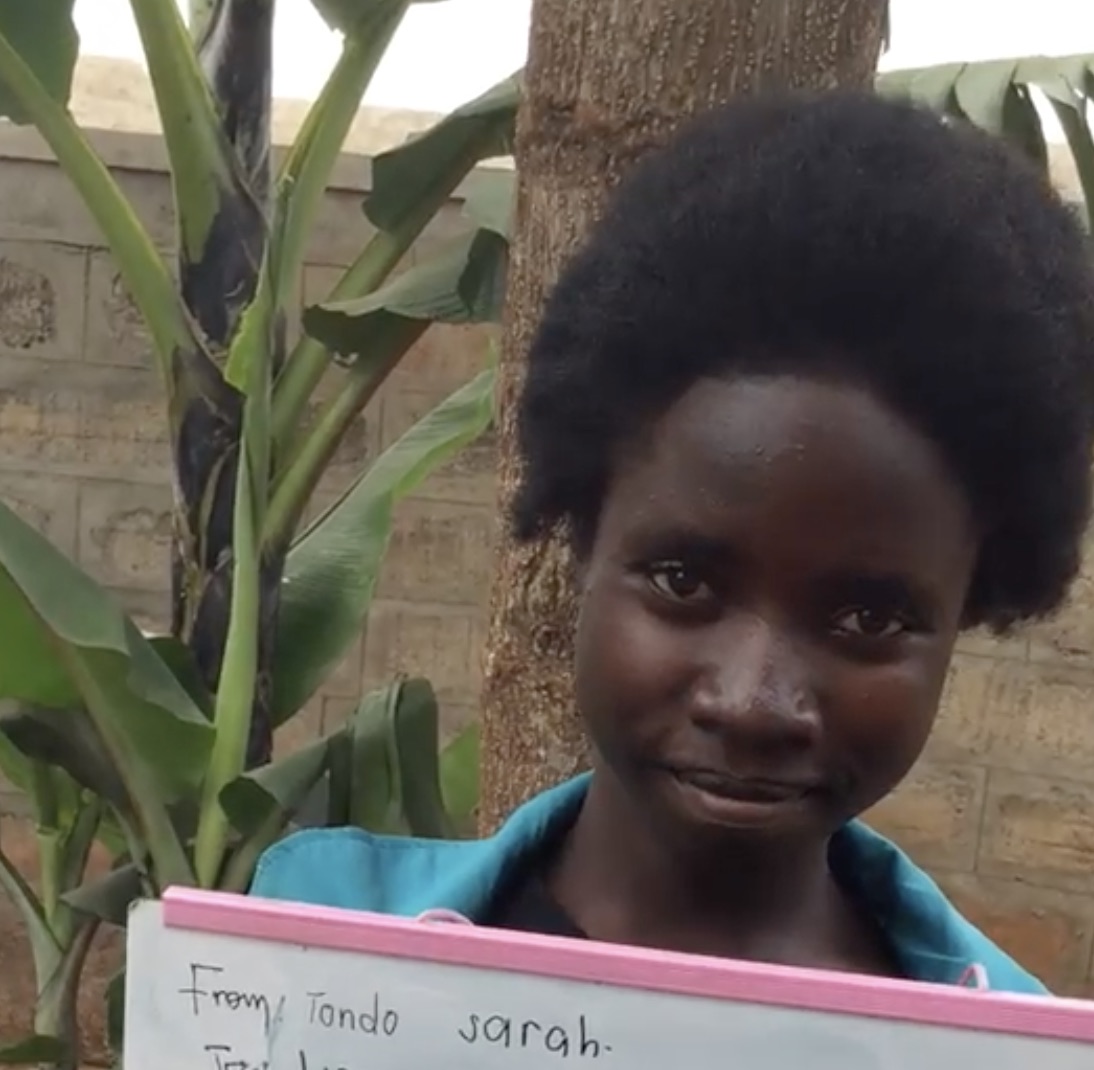 From, Tondo sarah.